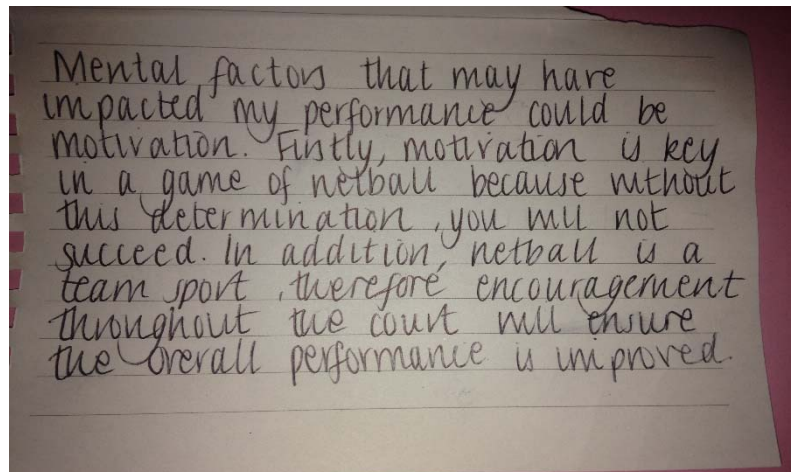 Mental factors that may have
impacted my performance could be
motivation. Firstly, motivation is key
in a game of netball because without
this determination, you will not
succeed. In addition, netball is a
team sport, therefore encouragement
throughout the court will ensure
the overall performance is improved.